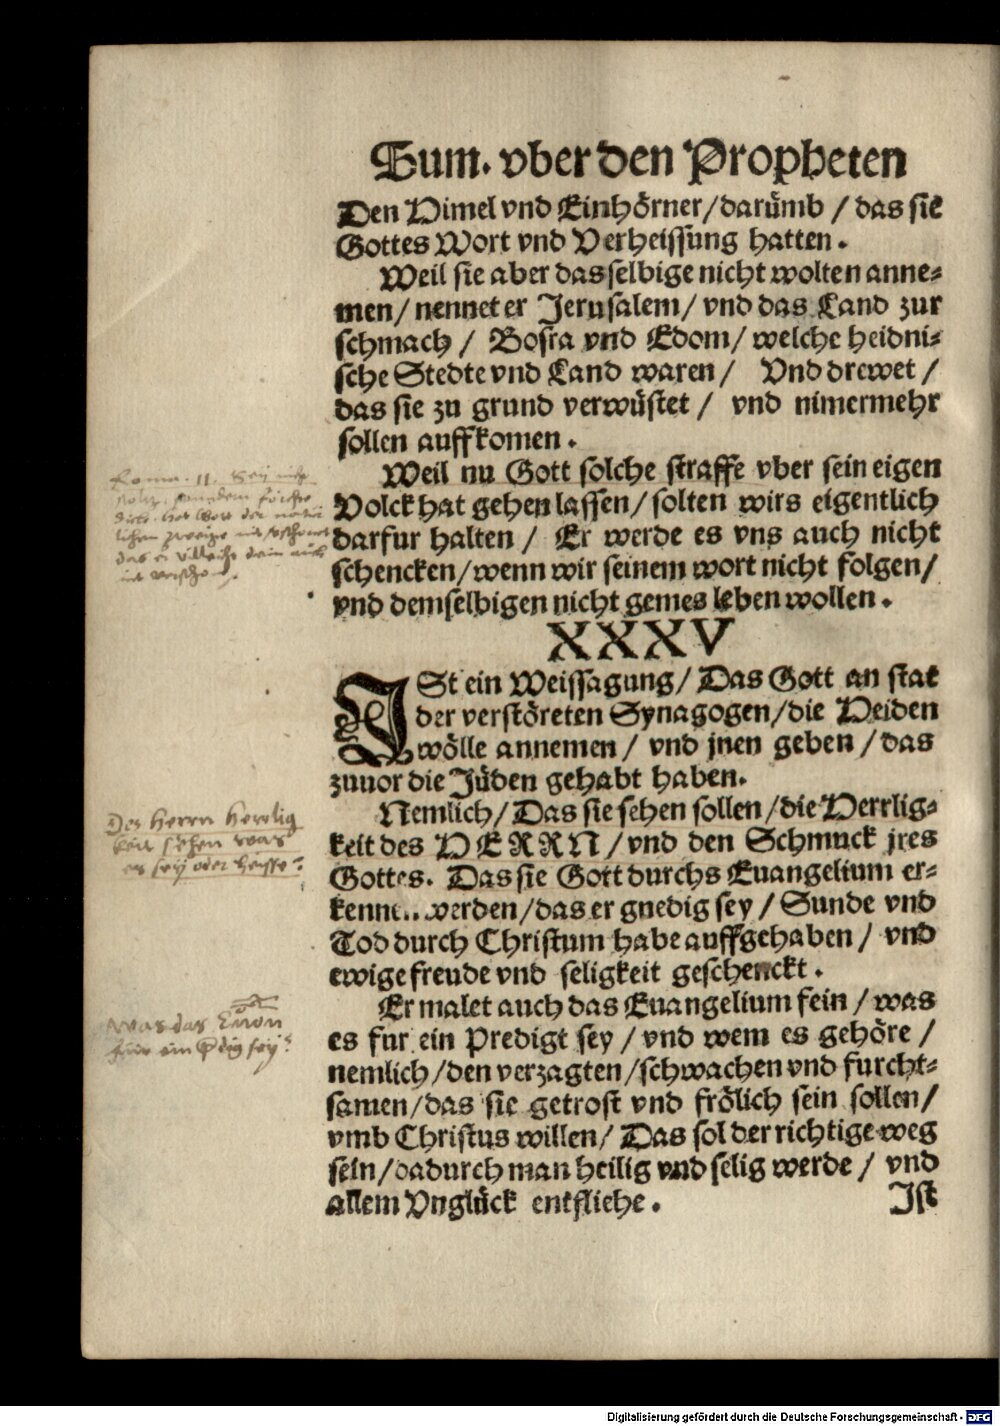 Sum. vber den Propheten
Den Himel vnd Einhörner / darümb / das sie
Gottes Wort vnd Verheissung hatten.
Weil sie aber dasselbige nicht wolten anne-
men / nennet er Jerusalem / vnd das Land zur
schmach / Bosra vnd Edom / welche heidni-
sche Stedte vnd Land waren / Vnd drewet /
das sie zu grund verwüstet / vnd nimermehr
sollen auffkomen.
Weil nu Gott solche straffe vber sein eigen
Volck hat gehen lassen / solten wirs eigentlich
darfur halten / Er werde es vns auch nicht
schencken / wenn wir seinem wort nicht folgen /
vnd demselbigen nicht gemes leben wollen.
Roma. 11. Sey nicht
XXXV
ISt ein Weissagung / Das Gott an stat
der verstöreten Synagogen / die Heiden
wölle annemen / vnd jnen geben / das
zuuor die Jüden gehabt haben.
Nemlich / Das sie sehen sollen / die Herrlig-
keit des HERRN / vnd den Schmuck jres
Gottes. Das sie Gott durchs Euangelium er-
kennen werden / das er gnedig sey / Sunde vnd
Tod durch Christum habe auffgehaben / vnd
ewige freude vnd seligkeit geschenckt.
Des Herrn Herrlig
keit sehen was
es sey oder heisse?
Er malet auch das Euangelium fein / was
es fur ein Predigt sey / vnd wem es gehöre /
nemlich / den verzagten / schwachen vnd furcht-
samen / das sie getrost vnd frölich sein sollen /
vmb Christus willen / Das sol der richtige weg
sein / dadurch man heilig vnd selig werde / vnd
allem Vnglück entfliehe.
Ist
Was das
für ein sey?
Digitalisierung gefördert durch die Deutsche Forschungsgemeinschaft - DFG